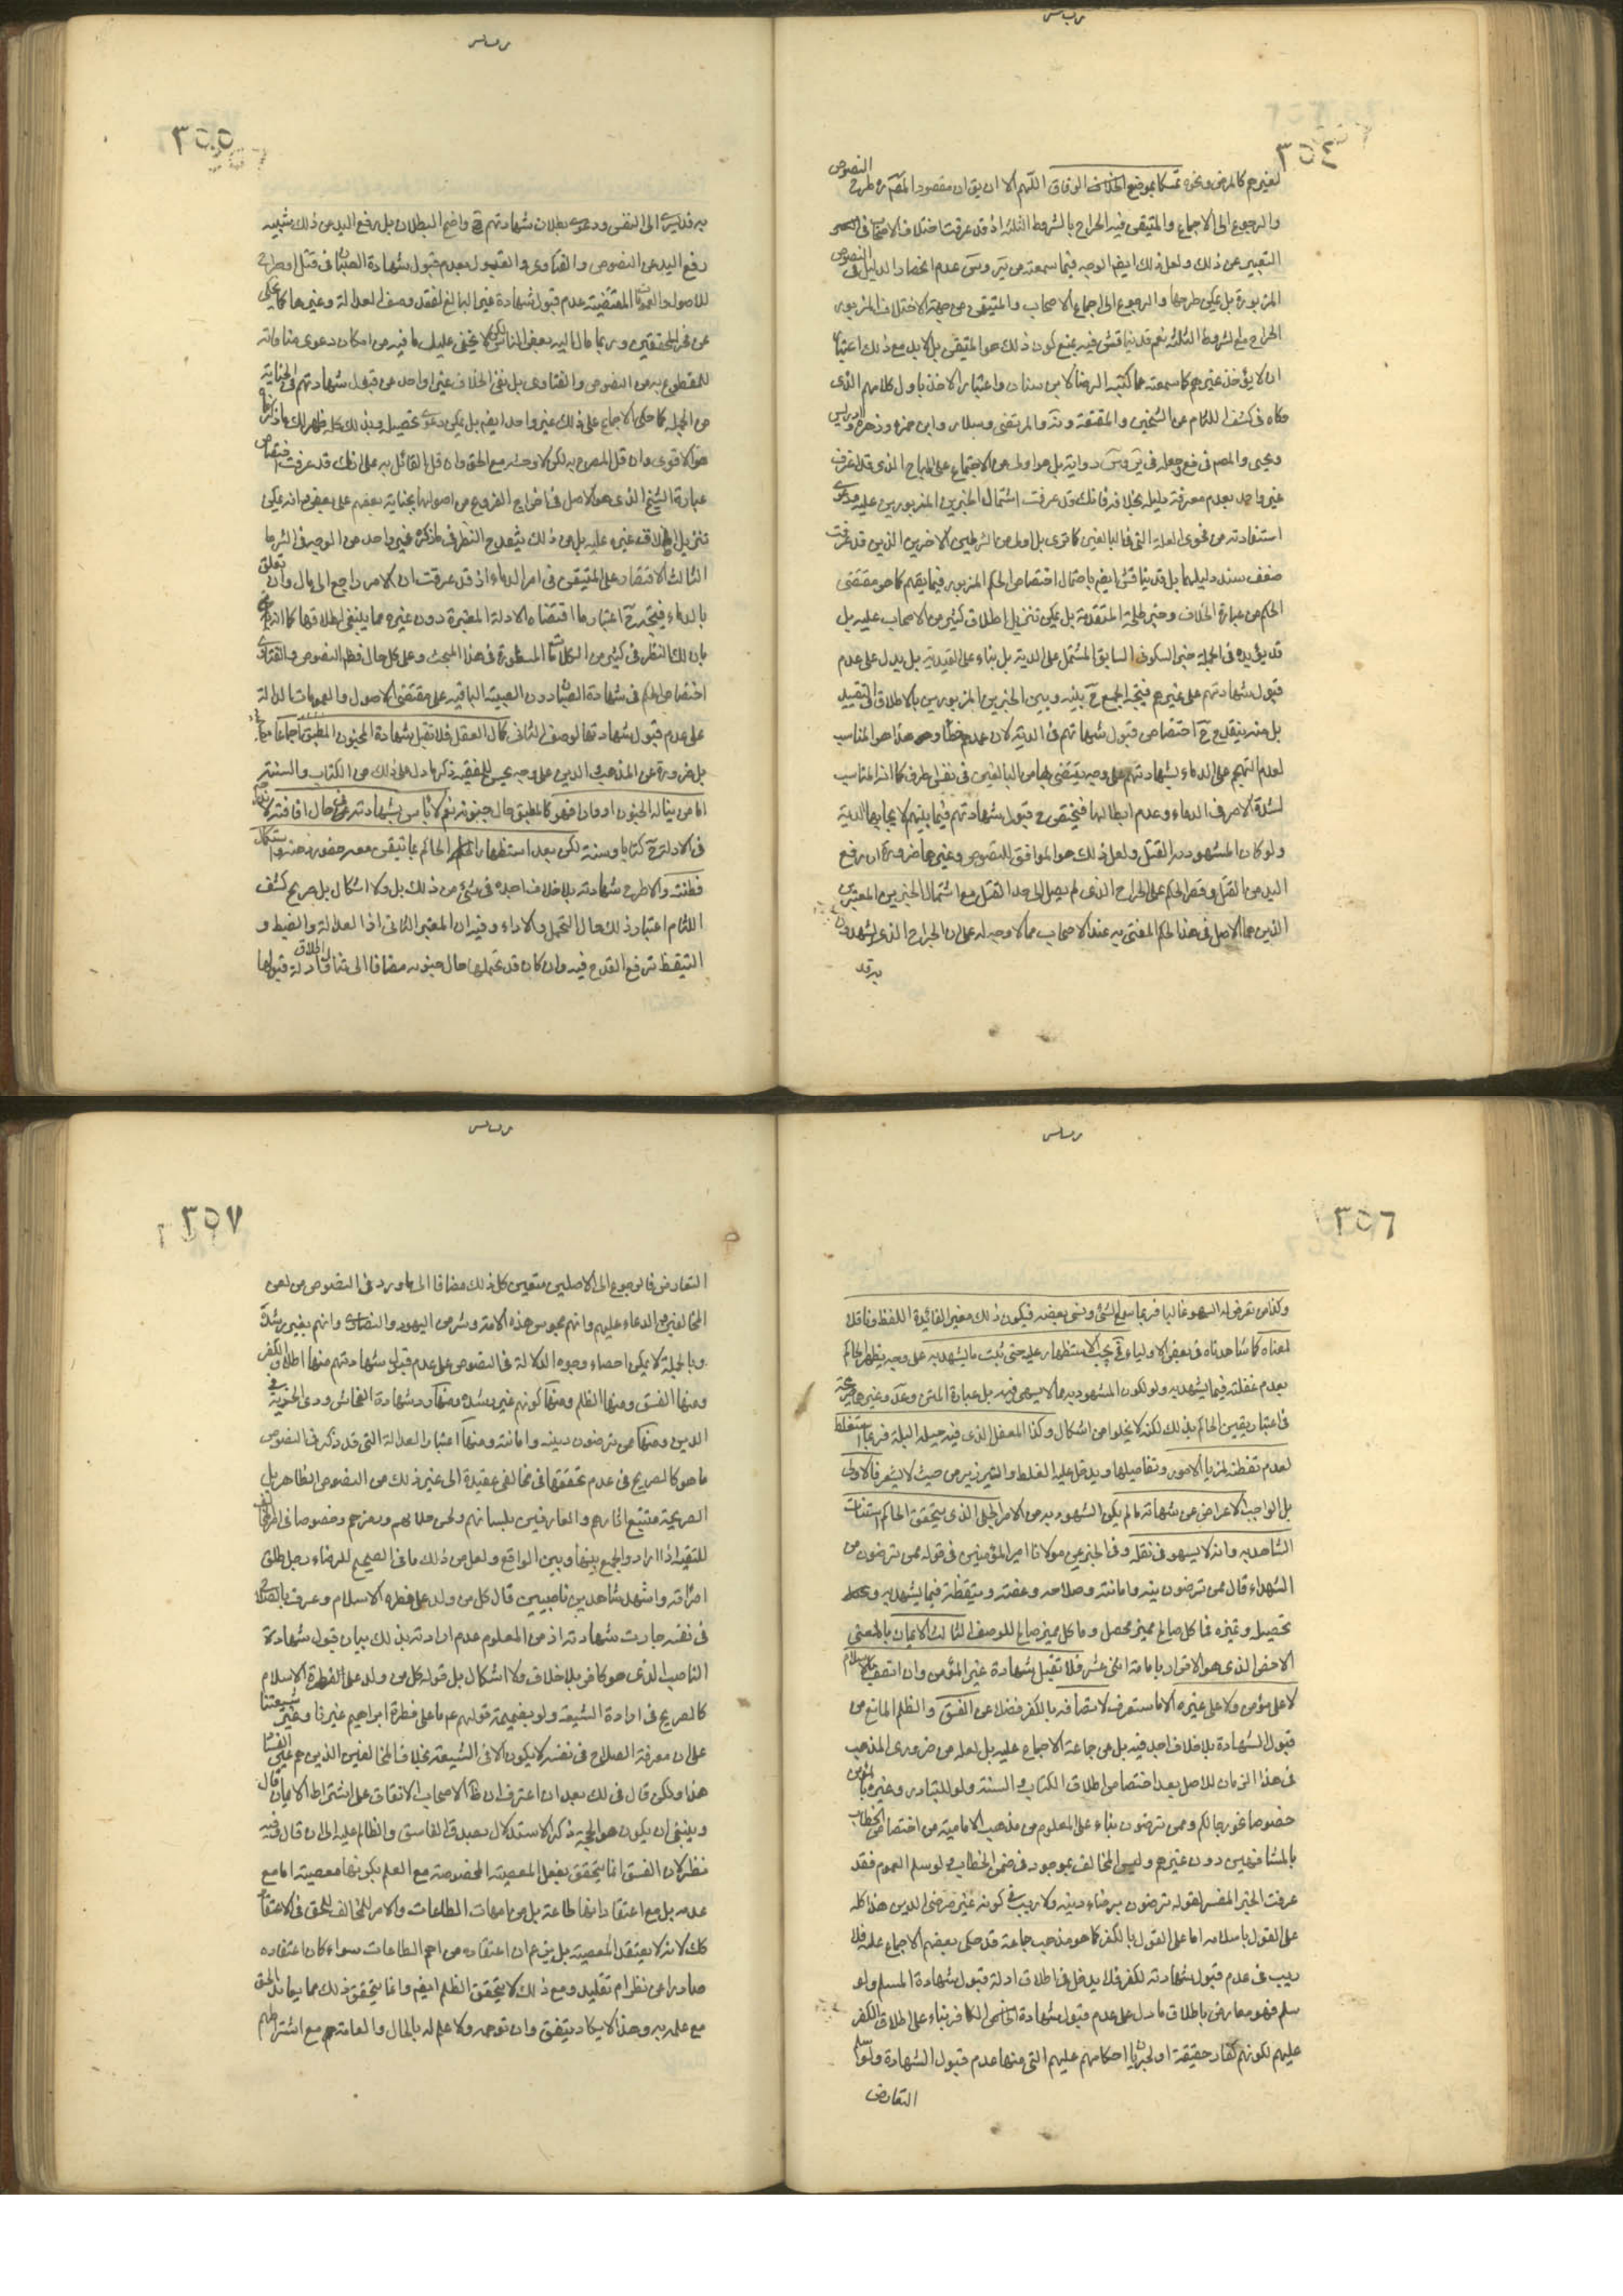 ٣٥٤
لغيرهم كالمرض ونحوه تمسكا بموضع الخلاف الوفاق اللهم الا ان يق ان مقصود المصم ره طرح النصوص
والرجوع الى الاجماع والمتيقن فيه الجراح بالشروط الثلثه اذ قد عرفت اختلاف الاصحاب في
التعبير عن ذلك ولعل ذلك ايضا الوجه فيما سمعته من عدم انحصار الدليل في النصوص
المزبورة بل يمكن طرحها والرجوع الى اجماع الاصحاب والمتيقن من جهة الاختلاف المزبور
الجراح مع الشروط الثلثه نعم قد يناقش فيه بمنع كون ذلك هو المتيقن بل لا بد مع ذلك اعتبار
ان لا يؤخذ غيرهم كما سمعته مما كتبه الرضا لابن سنان واعتبار الاخذ باول كلامهم الذي
حكاه في كشف اللثام عن الشيخين والمقنعة ويه والمرتضى وسلار وابن حمزه وزهره وادريس
ويحيى والمصم في فع وجعله في رواية بل هو اولى من الاجتماع على المباح الذي قد اعترف
غير واحد بعدم معرفة دليله بخلافه فانك قد عرفت اشتمال الخبرين المزبورين عليه ودعوى
استفادته من فحوى العلة التي في البالغين كما ترى بل اولى من الشرطين الاخرين الذين قد عرفت
ضعف سند دليلهما بل قد يناقش ايضا باحتمال اختصاص الحكم المزبور فيما بينهم كما هو مقتضى
الحكم من عبارة الخلاف وخبر طلحة المتقدمة بل يمكن تنزيل اطلاق كثير من الاصحاب عليه بل
قد يؤيده في الجملة خبر السكوني السابق المشتمل على الدية بل بناء على القيدية بل يدل على عدم
قبول شهادتهم على غيرهم فيتجه الجمع ح بينه وبين الخبرين المزبورين بالاطلاق والتقييد
بل منه ينقدح ح اختصاص قبول شهادتهم في الدية لان عمدهم خطأ وهذا هو المناسب
لعدم التهجم على الدماء بشهادتهم على وجه يقتضى بها من البالغين في نفس او طرف كما انه المناسب
لشدة الامر في الدماء وعدم ابطالها فيختص ح قبول شهادتهم فيما بينهم لايجابها الدية
ولو كان المشهود به القتل ولعل ذلك هو الموافق للنصوص وغيرها ضرورة ان رفع
اليد عن القتل وقصر الحكم على الجراح الذي لم يصل الى حد القتل مع اشتمال الخبرين المعتبرين
الذين هما الاصل في هذا الحكم المفتى به عند الاصحاب مما لا وجه له على ان الجراح الذي يشهدون
به قد
٣٥٥
به قد يسرى الى النفس ودعوى بطلان شهادتهم ح واضح البطلان بل رفع اليد عن ذلك شبيه
رفع اليد عن النصوص والفتاوى والقبول بعدم قبول شهادة الصبيان في قتل او جراح
للاصول والعمومات المقتضية عدم قبول شهادة غير البالغ لفقد وصف العدالة وغيرها كما حكى
عن فخر المحققين وربما مال اليه بعض الناس لكن لا يخفى عليك ما فيه من امكان دعوى منافاته
للمقطوع به من النصوص والفتاوى بل نفى الخلاف غير واحد عن قبول شهادتهم في الجناية
في الجملة كما حكى الاجماع على ذلك غير واحد ايضا بل يمكن دعوى تحصيله وبذلك كله ظهر لك ما ذكرنا
هو الاقوى وان قل المصرح به لكن لا وحشة مع الحق وان قل القائل به على انك قد عرفت اختصاص
عبارة الشيخ الذي هو الاصل في اخراج الفروع من اصولها بجناية بعضهم على بعض وانه يمكن
تنزيل اطلاق غيره عليه بل من ذلك ينقدح النظر فيما ذكره غير واحد من الوجه في الشرط
الثالث الاقتصار على المتيقن في امر الدماء اذ قد عرفت ان الامر راجع الى مال وان تعلق
بالدماء فيتجه ح اعتبار ما اقتضاه الادلة المعتبرة دون غيره مما ينفى اطلاقها كما انه
بان لك النظر في كثير من الكلمات المسطورة في هذا المبحث وعلى كل حال فظاهر النصوص والفتاوى
اختصاص الحكم في شهادة الصبيان دون الصبية الباقية على مقتضى الاصول والعمومات الدالة
على عدم قبول شهادتها الوصف الثاني كمال العقل فلا تقبل شهادة المجنون المطبق اجماعا
بل ضرورة من المذهب او الدين على وجه يحسن للفقيه ذكر ما دل على ذلك من الكتاب والسنة
اما من يناله الجنون ادوارا فهو كالمطبق حال جنونه نعم لا باس بشهادته في حال افاقته لاندراجه
في الادلة ح كتابا وسنة لكن بعد استظهار الحاكم بما يتيقن معه حضور ذهنه واستكمال
فطنته والا طرح شهادته بلا خلاف اجده في شيء من ذلك بل ولا اشكال بل صريح كشف
اللثام اعتبار ذلك حال التحمل والاداء وفيه ان المعتبر الثاني اذ العدالة والضبط و
التيقظ ترفع القدح فيه وان كان قد تحملها حال جنونه مضافا الى تناول اطلاق ادلة قبولها
٣٥٦
وكذا من تعرض له السهو غالبا فربما سمع الشيء ونسى بعضه فيكون ذلك مغيرا لفائدة اللفظ وناقلا
لمعناه كما شاهدناه في بعض الاولياء فح يجب الاستظهار عليه حتى يثبت ما يشهد به على وجه يظهر الحاكم
بعدم غفلته فيما يشهد به ولو لكون المشهود به مما لا يسهى فيه بل عبارة المتن وعد وغيرهما صريحة
في اعتبار يقين الحاكم بذلك لكنه لا يخلوا من اشكال وكذا المغفل الذي فيه جبلة البله فربما استغلط
لعدم تفطنه لمزايا الامور وتفاصيلها ويدخل عليه الغلط والتزوير من حيث لا يشعر فالاولى
بل الواجب الاعراض عن شهادته ما لم يكن المشهود به من الامر الجلى الذي يتحقق الحاكم استثبات
الشاهد به وانه لا يسهو في نقله وفي الخبر عن مولانا امير المؤمنين في قوله ممن ترضون من
الشهداء قال ممن ترضون دينه وامانته وصلاحه وعفته وتيقظه فيما يشهد به و
تحصيله وتميزه فما كل صالح مميز محصل وما كل مميز صالح للوصف الثالث الايمان بالمعنى
الاخص الذي هو الاقرار بامامة اثنى عشر فلا تقبل شهادة غير المؤمن وان اتصف بالاسلام
لا على مؤمن ولا على غيره الا ما ستعرف لاتصافه بالكفر فضلا عن الفسق والظلم المانع من
قبول الشهادة بلا خلاف اجده فيه بل عن جماعة الاجماع عليه بل لعله من ضروري المذهب
في هذا الزمان للاصل بعد اختصاص اطلاق الكتاب والسنة ولو للتبادر وغيره بالمؤمن
خصوصا نحو رجالكم وممن ترضون بناء على المعلوم من مذهب الامامية من اختصاص الخطاب
بالمشافهين دون غيرهم وليس المخالف بموجود في ضمن الخطاب ولو سلم العموم فقد
عرفت الخبر المفسر لقوله ترضون برضاء دينه ولا ريب في كونه غير مرضى الدين هذا كله
على القول باسلامه اما على القول بالكفر كما هو مذهب جماعة قد حكى بعضهم الاجماع عليه فلا
ريب في عدم قبول شهادته لكفره فلا يدخل في اطلاق ادلة قبول شهادة المسلم ولو
سلم فهو معارض باطلاق ما دل على عدم قبول شهادة الكافر بناء على اطلاق الكفر
عليهم لكونهم كفار حقيقة او لجريان احكامهم عليهم التي منها عدم قبول الشهادة ولو سلم
التعارض
٣٥٧
التعارض فالرجوع الى الاصلين متعين كل ذلك مضافا الى ما ورد في النصوص من لعن
المخالفين والدعاء عليهم وانهم مجوس هذه الامة وشر من اليهود والنصارى وانهم بغير رشدة
وبالجملة لا يمكن احصاء وجوه الدلالة في النصوص على عدم قبول شهادتهم منها اطلاق الكفر
ومنها الفسق ومنها الظلم ومنها كونهم غير رشدة ومنها رد شهادة الفحاش وذي الخزية في
الدين ومنها من ترضون دينه وامانته ومنها اعتبار العدالة التي قد ذكر في النصوص
ما هو كالصريح في عدم تحققها في مخالفى عقيدة الى غير ذلك من النصوص الظاهر بل
الصريحة متتبع اثارهم والعارفين بلسانهم ولحن خطابهم ورمزهم وخصوصا في
للتقية اذا اراد والجمع بينها وبين الواقع ولعل من ذلك ما في الصحيح للرضاء رجل طلق
امراته واشهد شاهدين ناصبيين قال كل من ولد على فطرة الاسلام وعرف بالصلاح
في نفسه جازت شهادته اذ من المعلوم عدم ارادته بذلك بيان قبول شهادة
الناصب الذي هو كافر بلا خلاف ولا اشكال بل قوله كل من ولد على الفطرة الاسلام
كالصريح في ارادة الشيعة ولو بضميمة قولهم عم ما على فطرة ابراهيم غيرنا وغير شيعتنا
على ان معرفة الصلاح في نفسه لا يكون الا في الشيعة بخلاف المخالفين الذين هم على
هذا ولكن قال في لك بعد ان اعترف ان ظ الاصحاب الاتفاق على اشتراط الايمان قال
وينبغى ان يكون هو الحجة ذكر الاستدلال بصدق الفاسق والظالم عليه الى ان قال وفيه
نظر لان الفسق انما يتحقق بفعل المعصية المخصوصة مع العلم بكونها معصية اما مع
عدمه بل مع اعتقاد انها طاعة بل من امهات الطاعات والامر في المخالف للحق في الاعتقاد
كك لانه لا يعتقد المعصية بل يزعم ان اعتقاده من اهم الطاعات سواء كان اعتقاده
صادرا عن نظر ام تقليد ومع ذلك لا يتحقق الظلم ايضا وانما يتحقق ذلك مما يعاند الحق
مع علمه به وهذا لا يكاد يتفق وان توهمه ولا علم له بالحال والعامة مع اشتراطهم